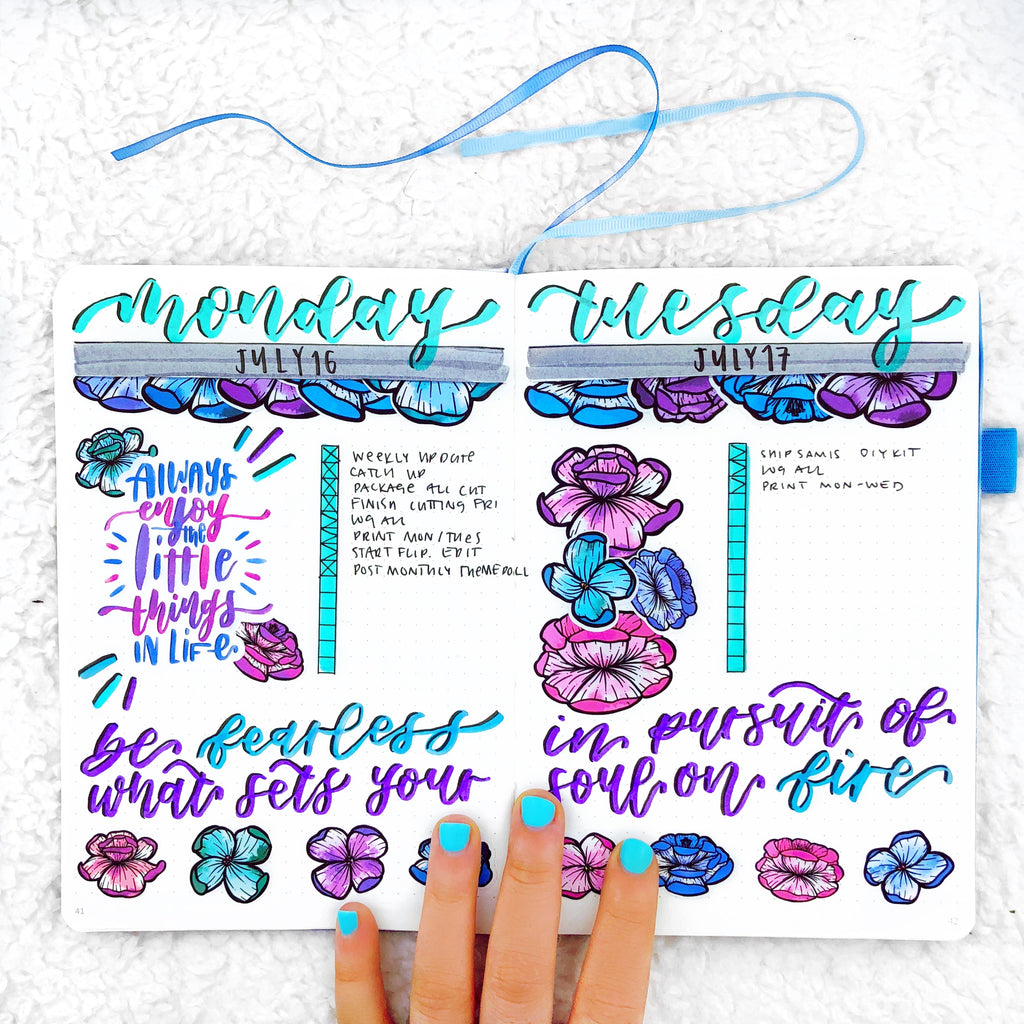 monday
JULY 16
ALWAYS
enjoy
the
little
things
IN LIFE.
WEEKLY UPDATE
CATCH UP
PACKAGE ALL CUT
FINISH CUTTING FRI
WG ALL
PRINT MON/TUES
START FLIP. EDIT
POST MONTHLY THEME POLL
be fearless
what sets your
41
tuesday
JULY 17
SHIP SAMIS DIY KIT
WG ALL
PRINT MON-WED
in pursuit of
soul on fire
42